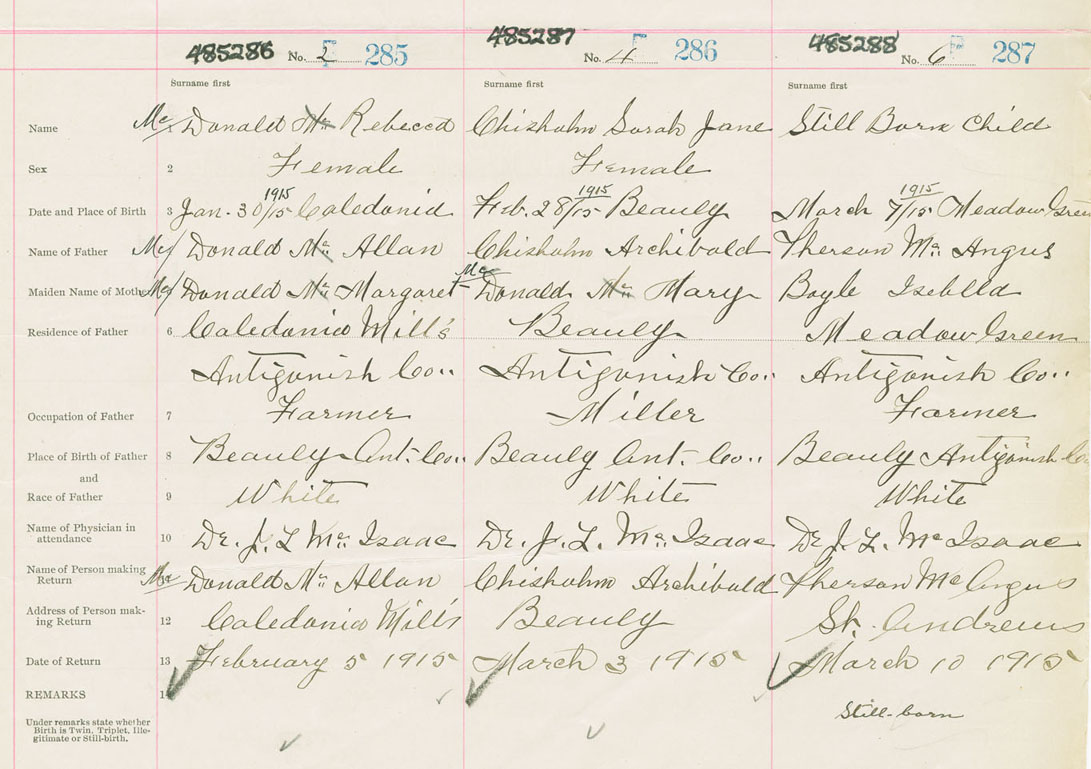 485286 No. 2 285 485287 No. 4 286 485288 No. 6 287
Surname first Surname first Surname first
Name Mc Donald Mc Rebecca Chisholm Sarah Jane Still Born Child
Sex 2 Female Female
1915 1915 1915
Date and Place of Birth 3 Jan. 30/15 Caledonia Feb. 28/15 Beauly March 7/15 Meadow Green
Name of Father Mc Donald Mc Allan Chisholm Archibald Pherson Mc Angus
Maiden Name of Mother Mc Donald Mc Margaret Mc Donald Mc Mary Boyle Isabella
Residence of Father 6 Caledonia Mill's Beauly Meadow Green
Antigonish Co.. Antigonish Co.. Antigonish Co..
Occupation of Father 7 Farmer Miller Farmer
Place of Birth of Father 8 Beauly Ant. Co.. Beauly Ant. Co.. Beauly Antigonish Co
and
Race of Father 9 White White White
Name of Physician in
attendance 10 Dr. J. L Mc Isaac Dr. J. L. Mc Isaac Dr J. L. Mc Isaac
Name of Person making
Return Mc Donald Mc Allan Chisholm Archibald Pherson Mc Angus
Address of Person mak-
ing Return 12 Caledonia Mills Beauly St. Andrews
Date of Return 13 February 5 1915 March 3 1915 March 10 1915
REMARKS 14 Still-born
Under remarks state whether
Birth is Twin, Triplet, Ille-
gitimate or Still-birth.